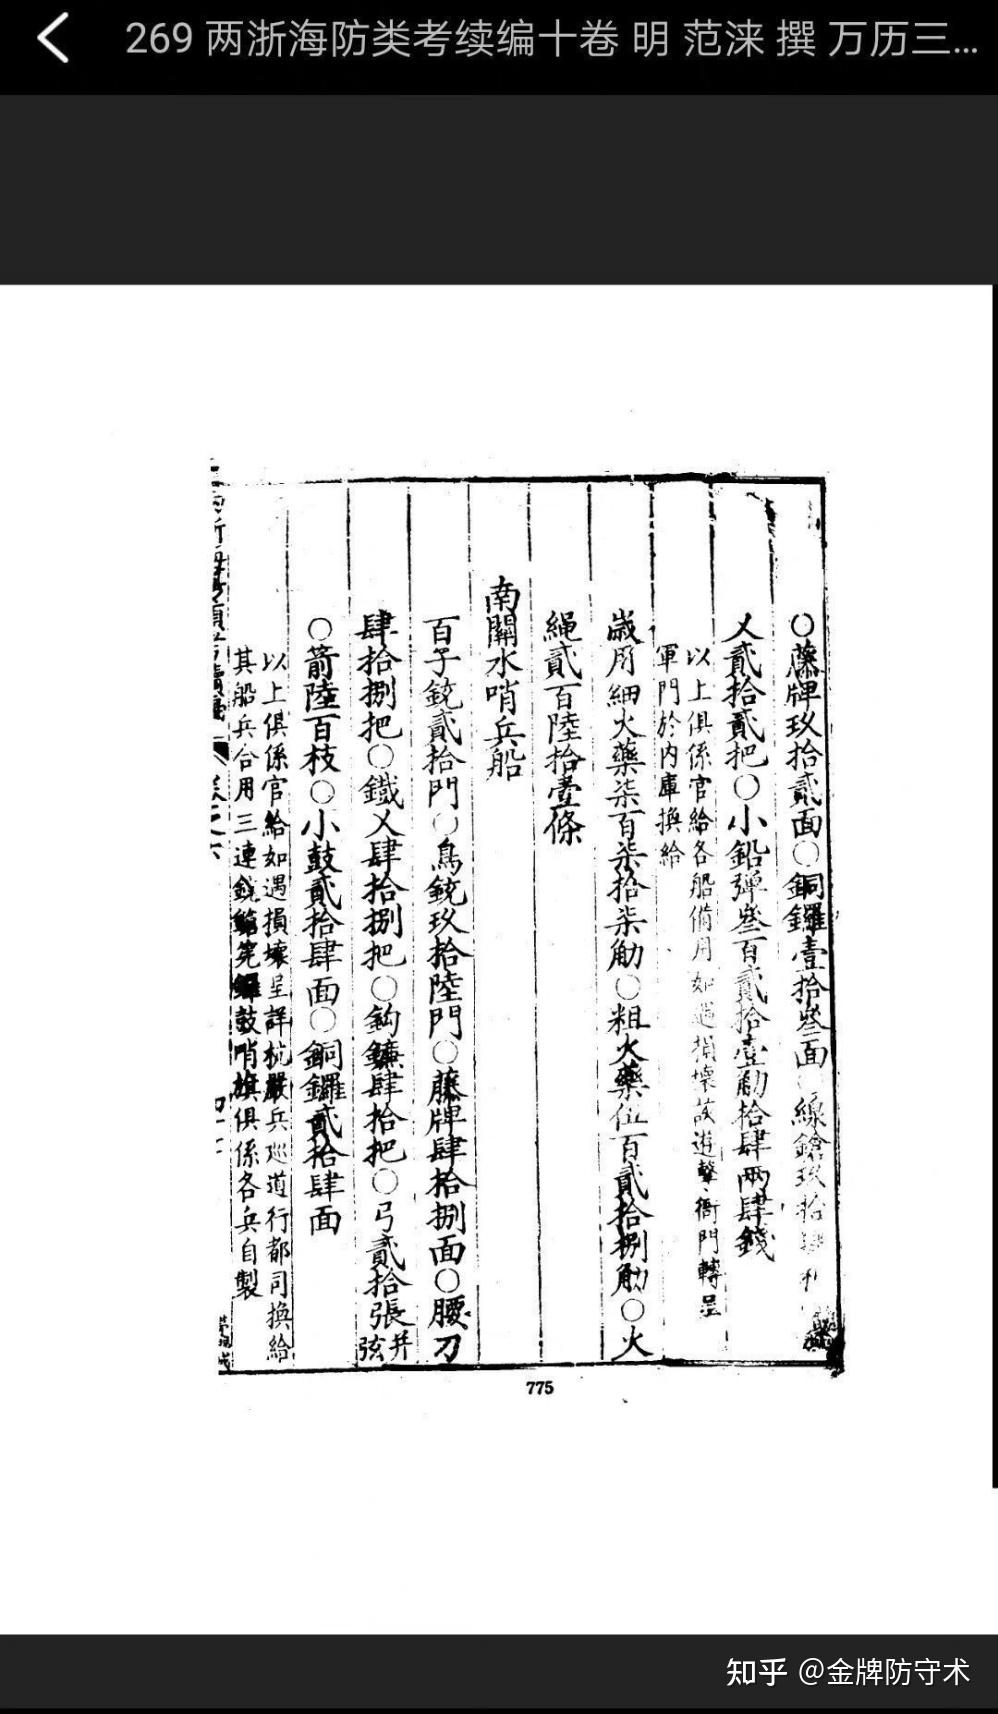 269 两浙海防类考续编十卷 明 范涞 撰 万历三...
○藤牌玖拾貳面○銅鑼壹拾叄面 線鎗玖拾
乂貳拾貳把○小鉛彈叄百貳拾壹觔拾肆兩肆錢
以上俱係官給各船備用如遇損壞該遊擊衙門轉呈
軍門於內庫換給
歲用細火藥柒百柒拾柒觔○粗火藥伍百貳拾捌觔○火
繩貳百陸拾壹條
南關水哨兵船
百子銃貳拾門○鳥銃玖拾陸門○藤牌肆拾捌面○腰刀
肆拾捌把○鐵乂肆拾捌把○鈎鐮肆拾把○弓貳拾張并弦
○箭陸百枝○小鼓貳拾肆面○銅鑼貳拾肆面
以上俱係官給如遇損壞呈詳杭嚴兵巡道行都司換給
其船兵合用三連銃 筅 鼓哨旗俱係各兵自製
775
知乎 @金牌防守术